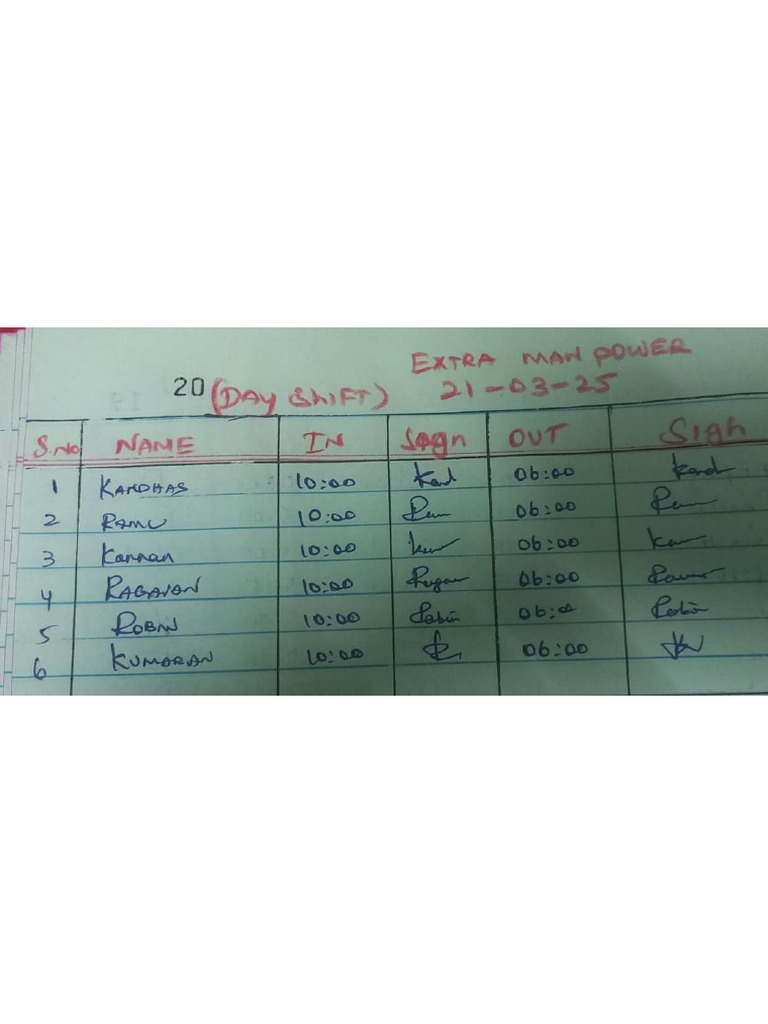 EXTRA MAN POWER
20 (DAY ShiFT) 21-03-25
S.No NAME IN Sign OUT Sign
1 KANDHAS 10:00 Kand 06:00 Kand
2 RAMU 10:00 06:00
3 Kannan 10:00 06:00
4 10:00 06:00
5 ROBIN 10:00 Robin 06:00 Robin
6 KUMARAN 10:00 06:00